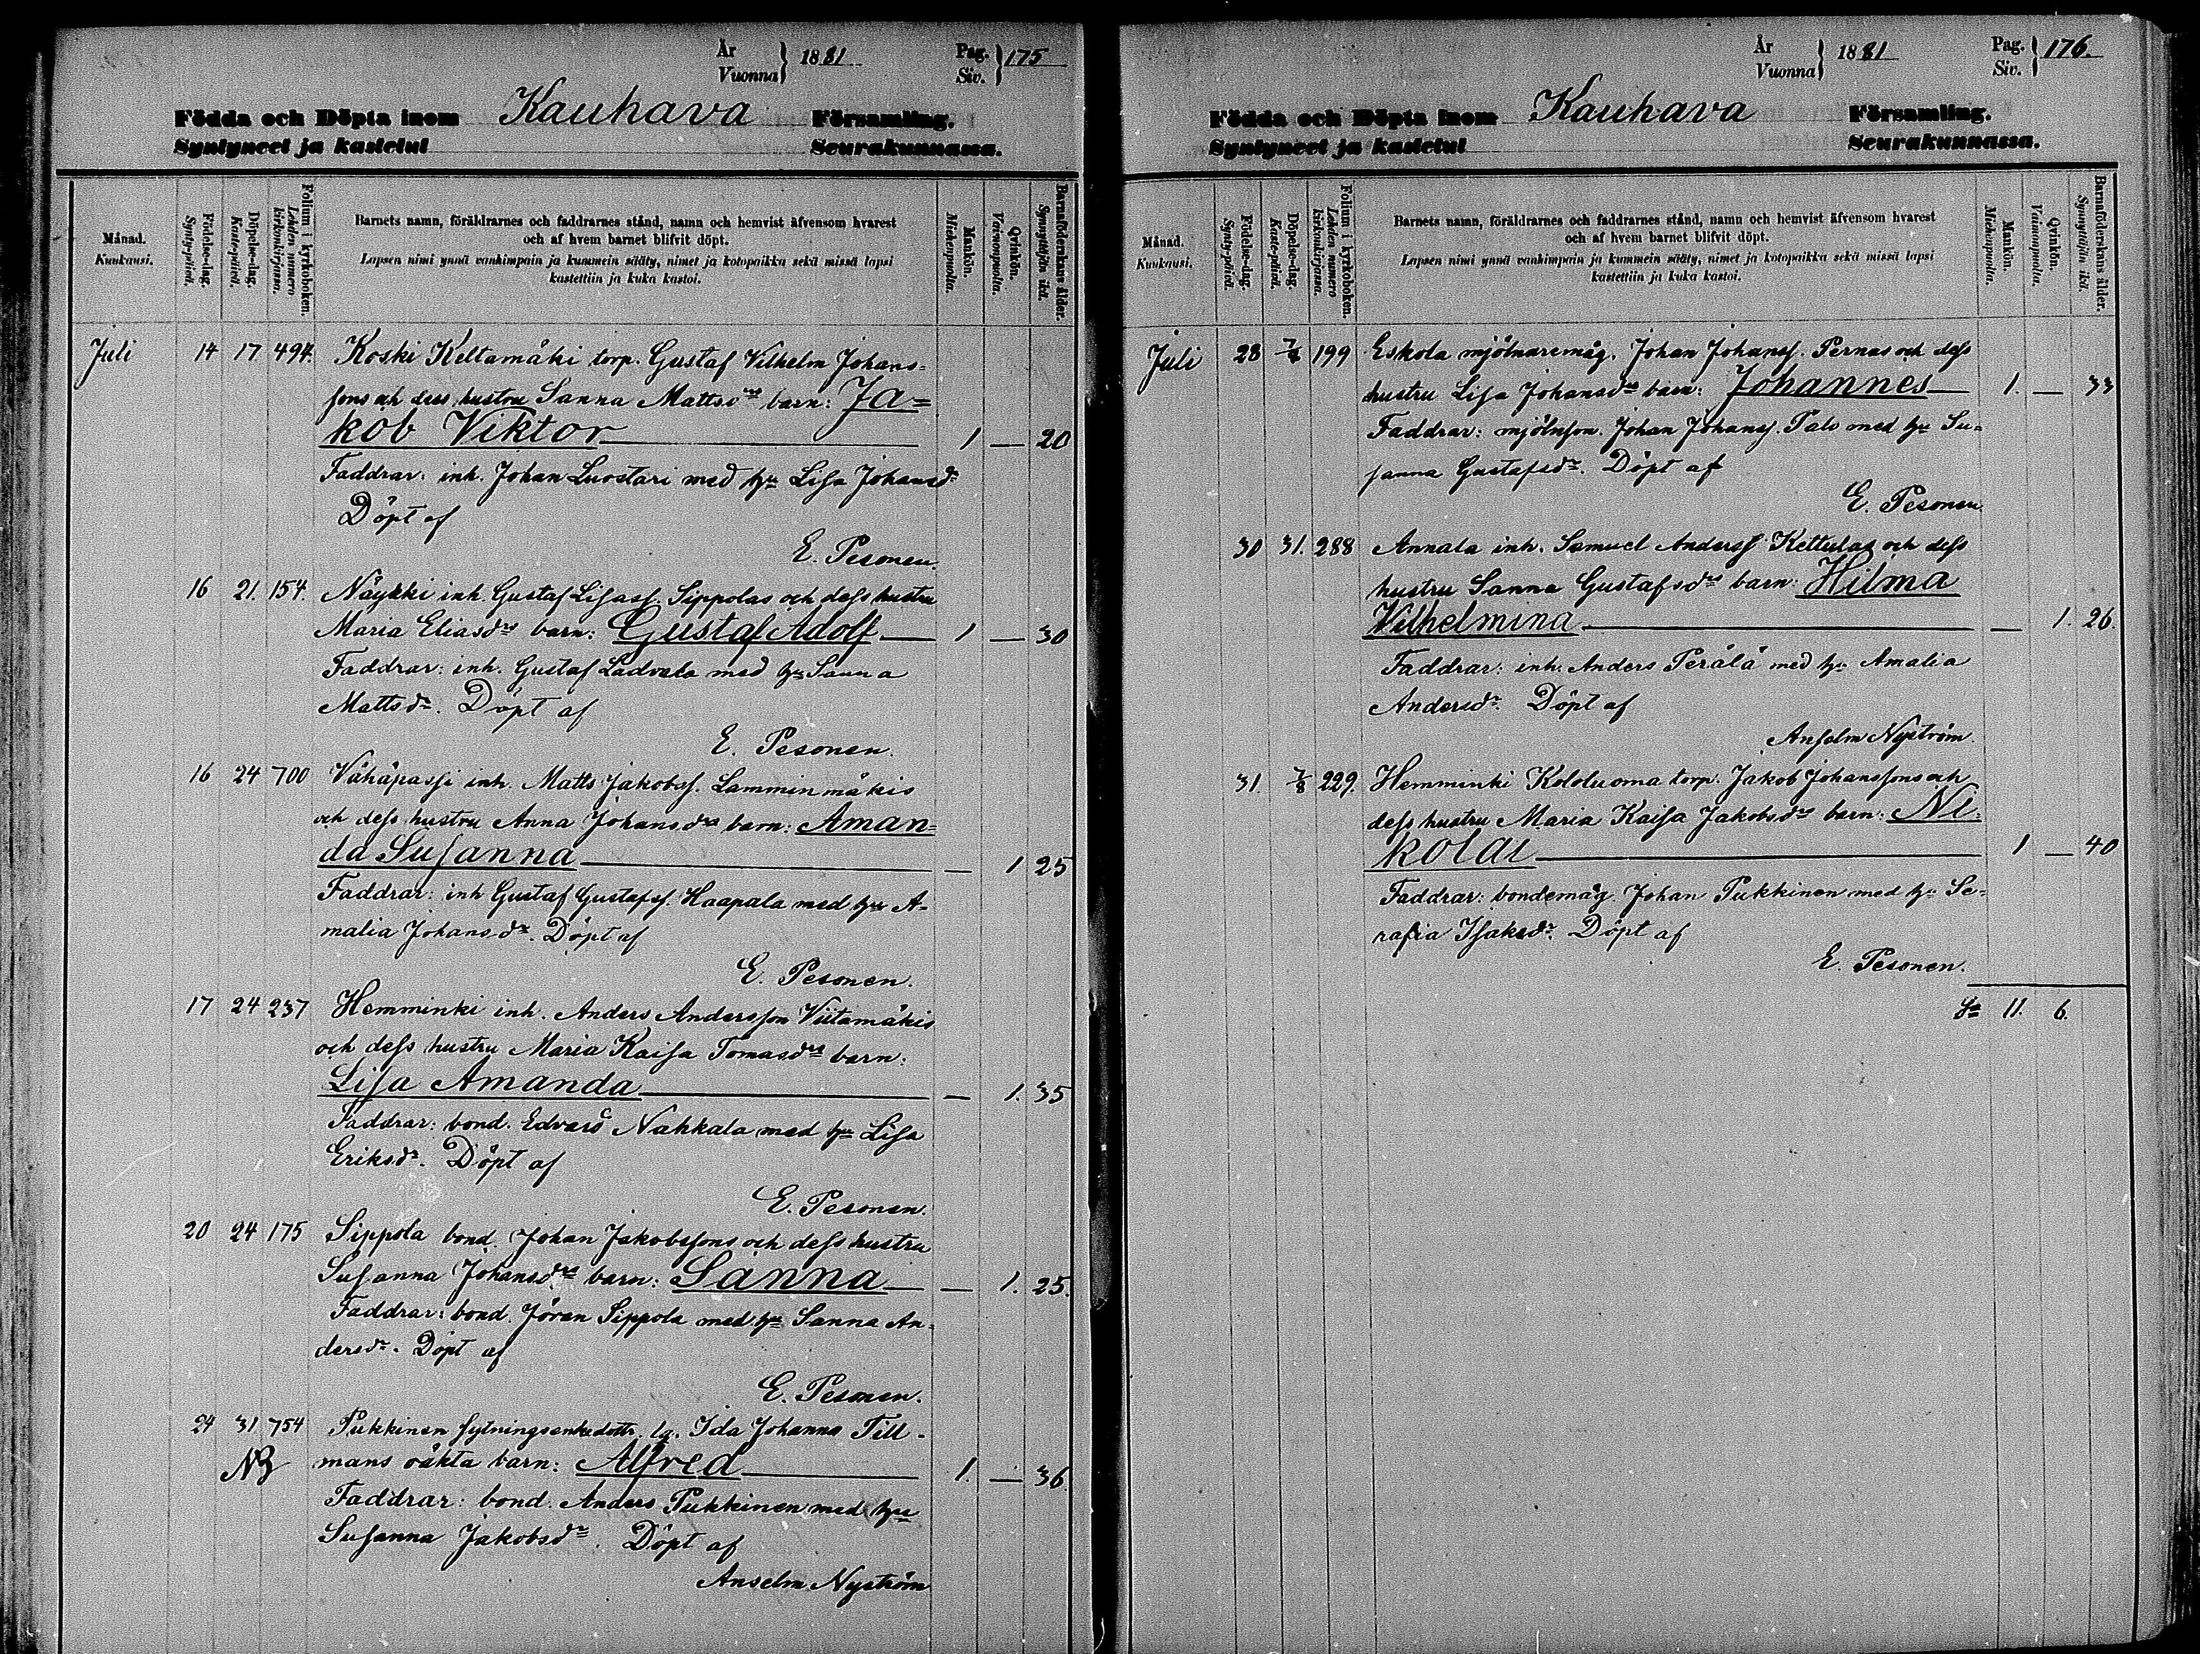 År
Vuonna } 1881
Pag.
Siv. } 175
Födda och Döpta inom Kauhava Församling.
Syntyneet ja kastetut Seurakunnassa.
Månad.
Kuukausi.
Födelse-dag.
Synty-päivä.
Döpelse-dag.
Kaste-päivä.
Folium i kyrkoboken.
Lehden numero
kirkonkirjassa.
Barnets namn, föräldrarnes och faddrarnes stånd, namn och hemvist äfvensom hvarest
och af hvem barnet blifvit döpt.
Lapsen nimi ynnä vanhimpain ja kummein sääty, nimet ja kotopaikka sekä missä lapsi
kastettiin ja kuka kastoi.
Mankön.
Miehenpuolta.
Qvinkön.
Vaimonpuolta.
Barnaföderskans ålder.
Synnyttäjän ikä.
Juli 14 17 494. Koski Keltamäki torp. Gustaf Vilhelm Johans-
sons och dess hustru Sanna Mattsdrs barn: Ja=
kob Viktor 1 — 20
Faddrar: inh. Johan Luostari med hu Lisa Johansdr
Döpt af
E. Pesonen.
16 21. 154. Näykki inh. Gustaf Lisass. Sippolas och dess hustru
Maria Eliasdrs barn: Gustaf Adolf 1 — 30
Faddrar: inh. Gustaf Ladvala med hu Sanna
Mattsdr. Döpt af
E. Pesonen.
16 24 700 Vähäpassi inh. Matts Jakobss. Lamminmäkis
och dess hustru Anna Johansdrs barn: Aman=
da Susanna — 1 25
Faddrar: inh Gustaf Gustafss. Haapala med hu A-
malia Johansdr. Döpt af
E. Pesonen.
17 24 237 Hemminki inh. Anders Andersson Viitamäkis
och dess hustru Maria Kaisa Tomasdrs barn:
Lisa Amanda — 1. 35
Faddrar: bond. Edvard Nahkala med hu Lisa
Eriksdr. Döpt af
E. Pesonen.
20 24 175 Sippola bond. Johan Jakobssons och dess hustru
Susanna Johansdrs barn: Sanna — 1. 25.
Faddrar: bond. Jöran Sippola med hu Sanna An-
dersdr. Döpt af
E. Pesonen.
24 31 754 Pukkinen sytningsenkedottr. lg. Ida Johanna Till-
NB mans oäkta barn: Alfred 1. — 36.
Faddrar: bond. Anders Pukkinen med hu
Susanna Jakobsdr. Döpt af
Anselm Nyström
År
Vuonna } 1881
Pag.
Siv. } 176.
Födda och Döpta inom Kauhava Församling.
Syntyneet ja kastetut Seurakunnassa.
Månad.
Kuukausi.
Födelse-dag.
Synty-päivä.
Döpelse-dag.
Kaste-päivä.
Folium i kyrkoboken.
Lehden numero
kirkonkirjassa.
Barnets namn, föräldrarnes och faddrarnes stånd, namn och hemvist äfvensom hvarest
och af hvem barnet blifvit döpt.
Lapsen nimi ynnä vanhimpain ja kummein sääty, nimet ja kotopaikka sekä missä lapsi
kastettiin ja kuka kastoi.
Mankön.
Miehenpuolta.
Qvinkön.
Vaimonpuolta.
Barnaföderskans ålder.
Synnyttäjän ikä.
Juli 28 7/8 199 Eskola mjölnaremåg. Johan Johanss. Pernas och dess
hustru Lisa Johansdrs barn: Johannes 1. — 33
Faddrar: mjölnson. Johan Johanss. Palo med hu Su-
sanna Gustafsdr. Döpt af
E. Pesonen
30 31. 288 Annala inh. Samuel Anderss Kettulas och dess
hustru Sanna Gustafsdrs barn: Hilma
Vilhelmina — 1. 26.
Faddrar: inh. Anders Perälä med hu Amalia
Andersdr. Döpt af
Anselm Nyström.
31. 7/8 229. Hemminki Kololuoma torp. Jakob Johanssons och
dess hustru Maria Kaisa Jakobsdrs barn: Ni-
kolai 1 — 40
Faddrar: bondemåg. Johan Pukkinen med hu Se-
rafia Isaksdr. Döpt af
E. Pesonen.
Sa 11. 6.